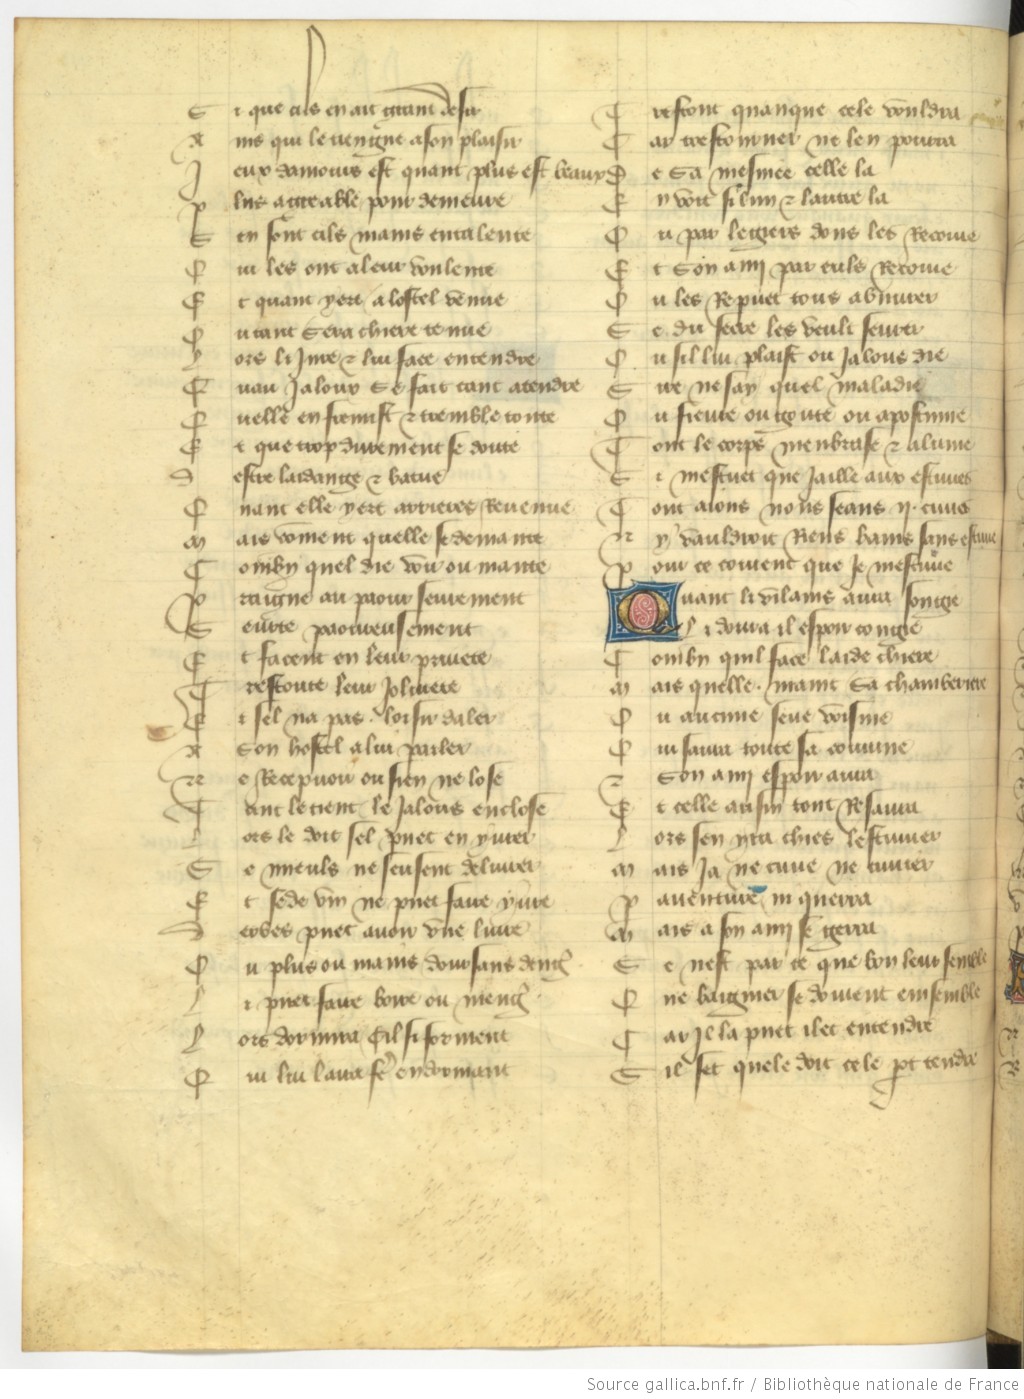 S i que cils en ait grant desir
A ins qui le tiengne a son plaisir
J eux damours est quant plus est beaux
P lus aggreable pour demeure
S en sont cils mains entalente
Q ui les ont a leur voulente
E t quant yert a lostel venue
O u tant sera chiere tenue
L ors li jure et lui face entendre
Q uau jaloux se fait tant atendre
Q uelle en fremist et tremble toute
E t que trop durement se doute
D estre laidange et batue
Q uant elle yert arrieres revenue
M ais coment quelle se demante
C ombn quel die voir ou mante
P raigne au paour seurement
S eurte paoureusement
E t facent en leur privete
T restoute leur jolivete
E t sel na pas loisir daler
A son hostel a lui parler
N e recepvoir ou sien ne lose
T ant le tient le jalous enclose
L ors le doit sel puet en yvrer
S e mieuls ne sen scet delivrer
E t se de vin ne puet faire yvre
D erbes puet avoir une livre
O u plus ou mains dont sans dengr
L i puet faire boire ou mengr
L ors dormira cil si forment
Q ui lui laira fe en dormant
T restout quanque cele vouldra
C ar trestourner ne len pourra
D e sa mesniee celle la
E nvoit si lun et lautre la
O u par legiers dons les recoive
E t son ami par euls recoive
O u les repuet tous abuvrer
S e du secre les veult sevrer
O u sil lui plaist ou jalous die
S ire ne say quel maladie
O u fievre ou goute ou apostume
T out le corps menbrase et alume
S i mestuet que jaille aux estuves
T out aions nous seans ii cuves
N y vauldroit riens bains sans estuve
P our ce covient que je mestuve
Quant li vilains aura songie
L i doura il espoir congie
C ombn quil face laide chiere
M ais quelle maint sa chamberiere
O u aucune seue voisine
Q ui saura toute sa couvine
E son ami espoir aura
E t celle ausin tout resaura
L ors sen yra chies lestuvier
M ais ja ne cuve ne cuvier
P aventure ni querra
M ais a son ami se gerra
S e nest par ce que bon leur semble
Q ue baignier se doivent ensemble
C ar il la puet ilec entendre
S il set quele doit cele pt tendre